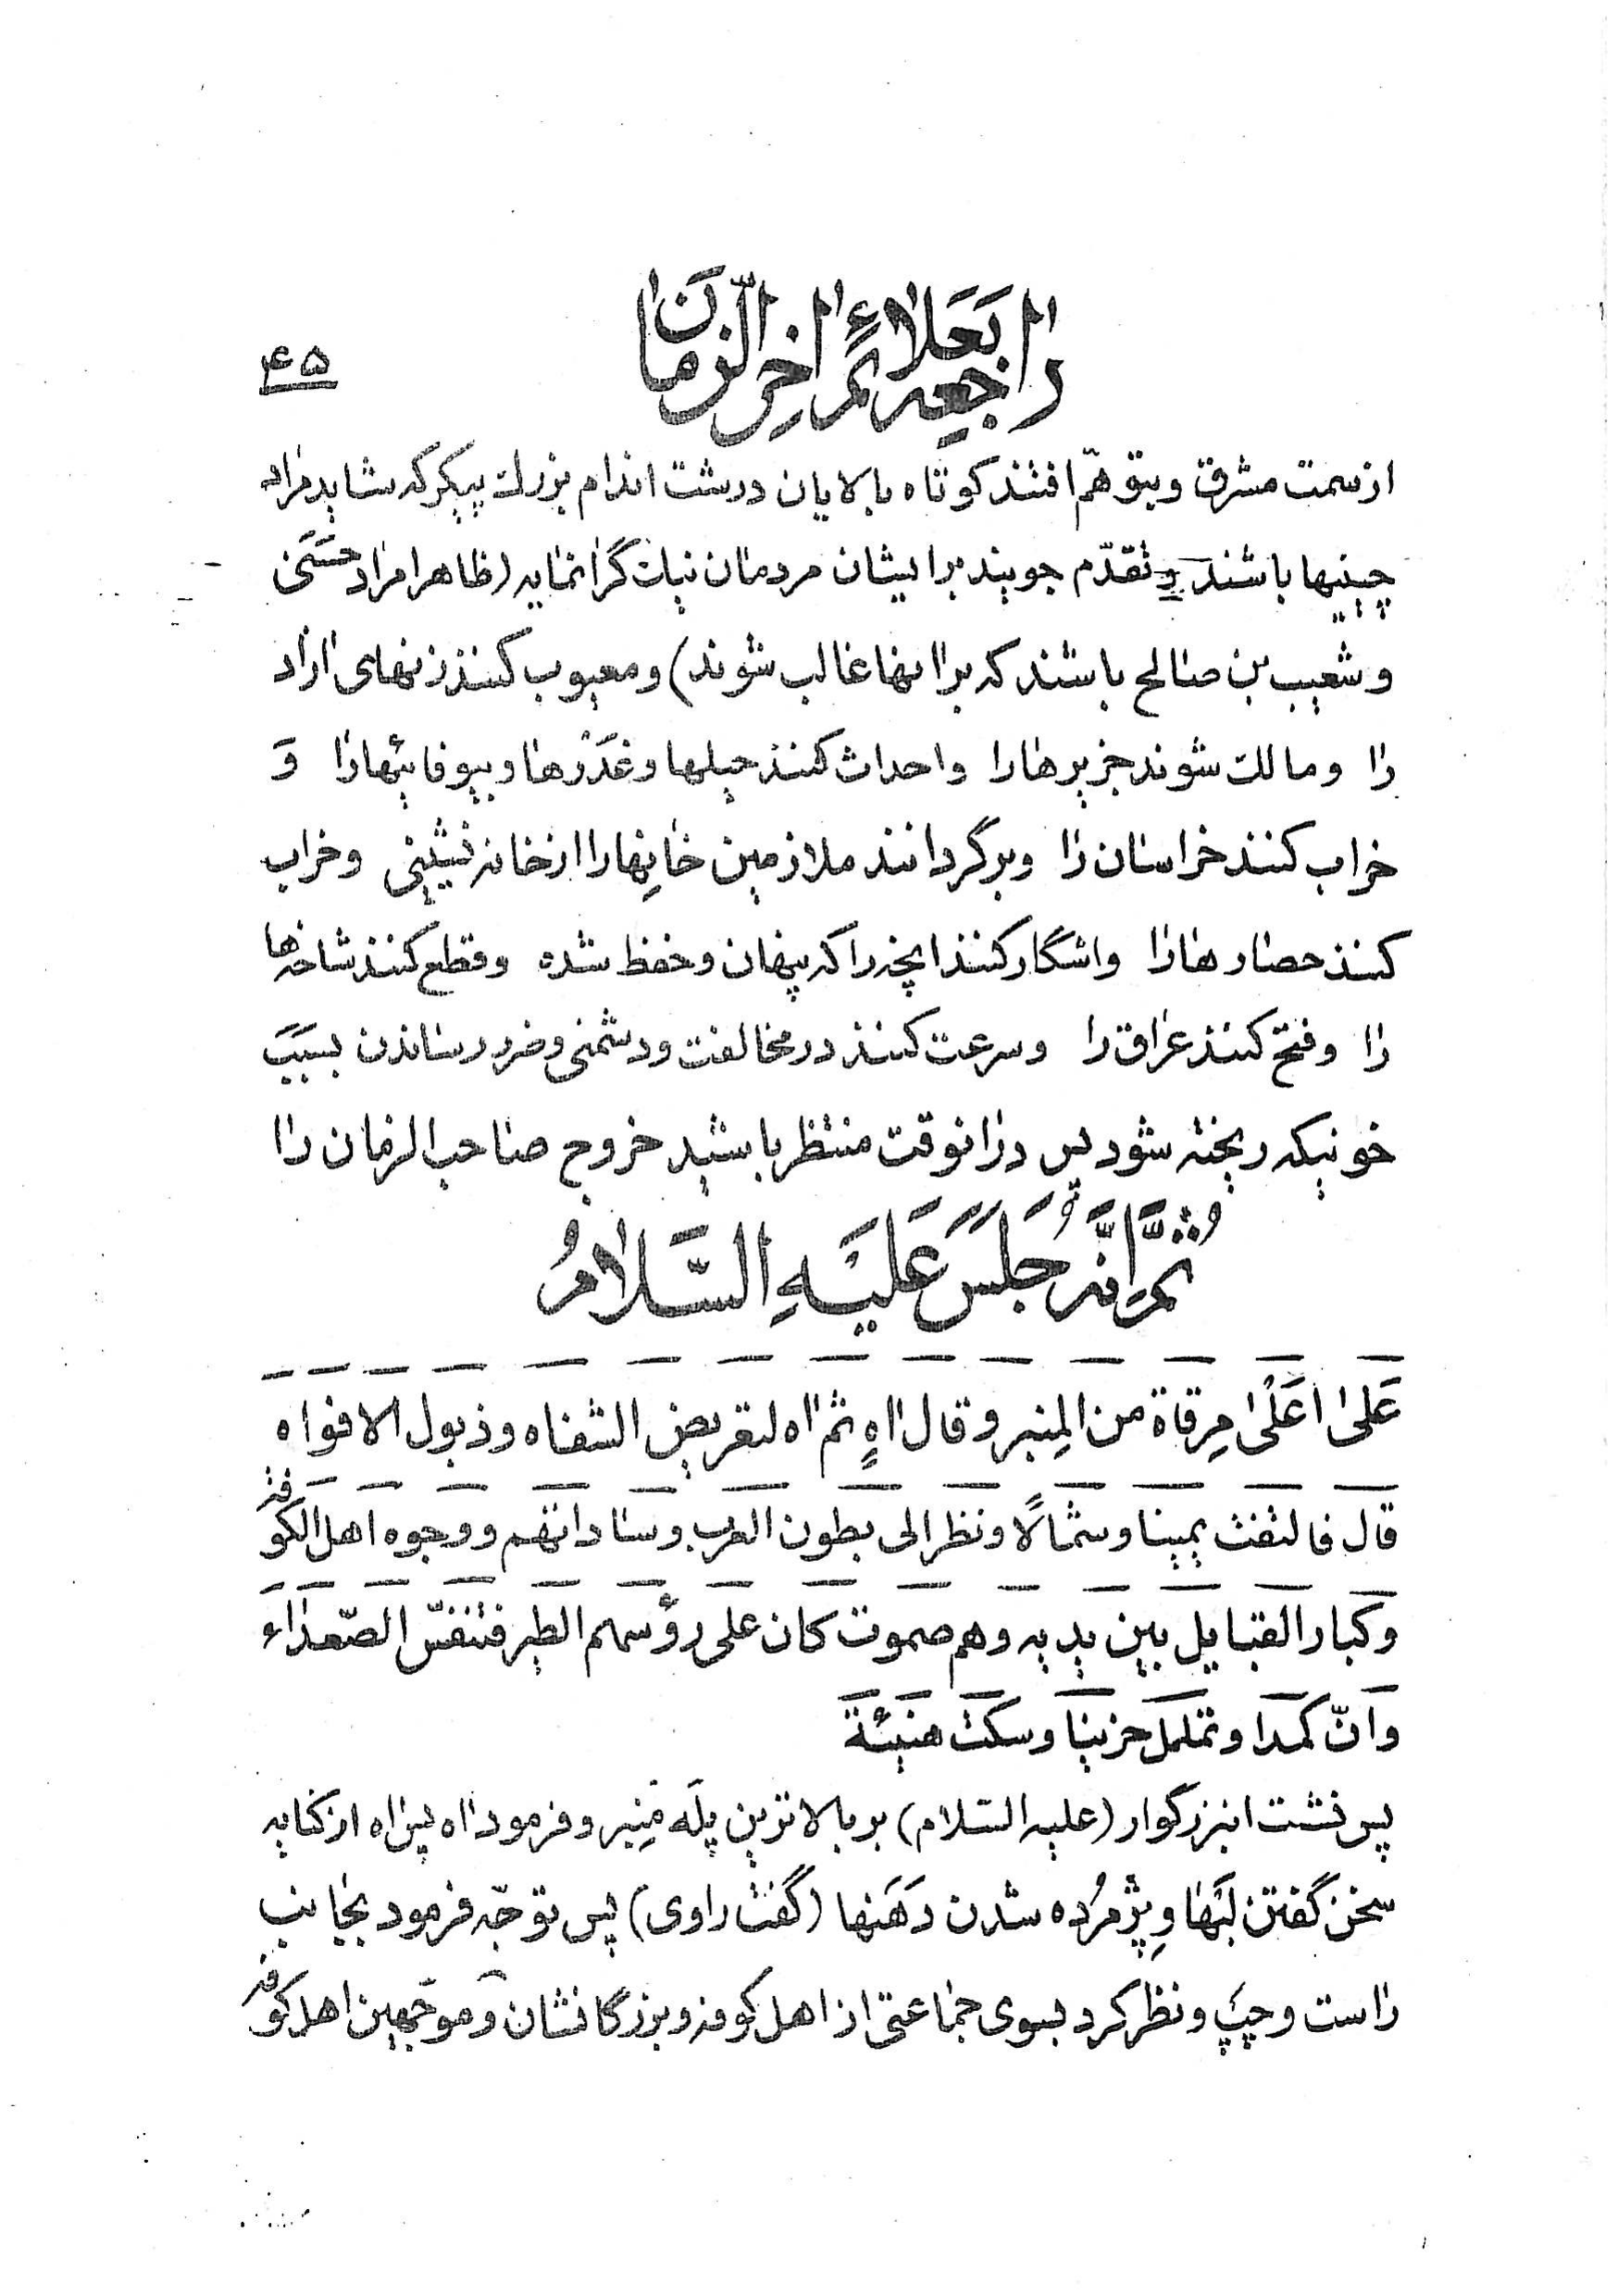 راجعه بعلائم اخر الزمان
۴۵
از سمت مشرق و بتوهّم افتند کوتاه بالایان درشت اندام بزرك پیکر که شاید مراد
چینیها باشند و تقدّم جویند بر ایشان مردمان نبات گرانمایه (ظاهرا مراد حسنی
و شعیب بن صالح باشند که بر انها غالب شوند) و معیوب کنند زنهای ازاد
را و مالك شوند جزیرها را و احداث کنند حیلها و غَدْرها و بیوفائیها را وَ
خراب کنند خراسان را و برگردانند ملازمین خانِها را از خانه نشینی و خراب
کنند حصارها را و اشگار کنند انچه را که پنهان و حفظ شده و قطع کنند شاخه‌ها
را و فتح کنند عراق را و سرعت کنند در مخالفت و دشمنی و ضرر رساندن بسبَبَ
خونیکه ریخته شود پس در انوقت منتظر باشید خروج صاحب الزمان را
ثُمَّ اِنَّهُ جَلَسَ عَلَیْهِ السَّلامُ
عَلیٰ اَعْلیٰ مِرقاة من المِنبر و قال ااهٍ ثم اه لتعریض الشفاه و ذبول الافواه
قال فالتفت یمینا و شمالًا و نظر الی بطون العرب و ساداتهم و وجوه اهل الکوفه
و کبار القبایل بین یدیه و هم صموت کان علی رؤسهم الطیر فتنفّس الصّعداء
و انّ کمدا و تململ حزینا و سکت هنیئة
پس نشست انبزرگوار (علیه السّلام) بر بالاترین پلّه مِنبر و فرمود اه پس اه از کنایه
سخن گفتن لَبها و پِژمُرده شدن دَهَنها (گفت راوی) پس توجّه فرمود بجانب
راست و چپ و نظر کرد بسوی جماعتی از اهل کوفه و بزرگانشان و موجّهین اهل کوفه